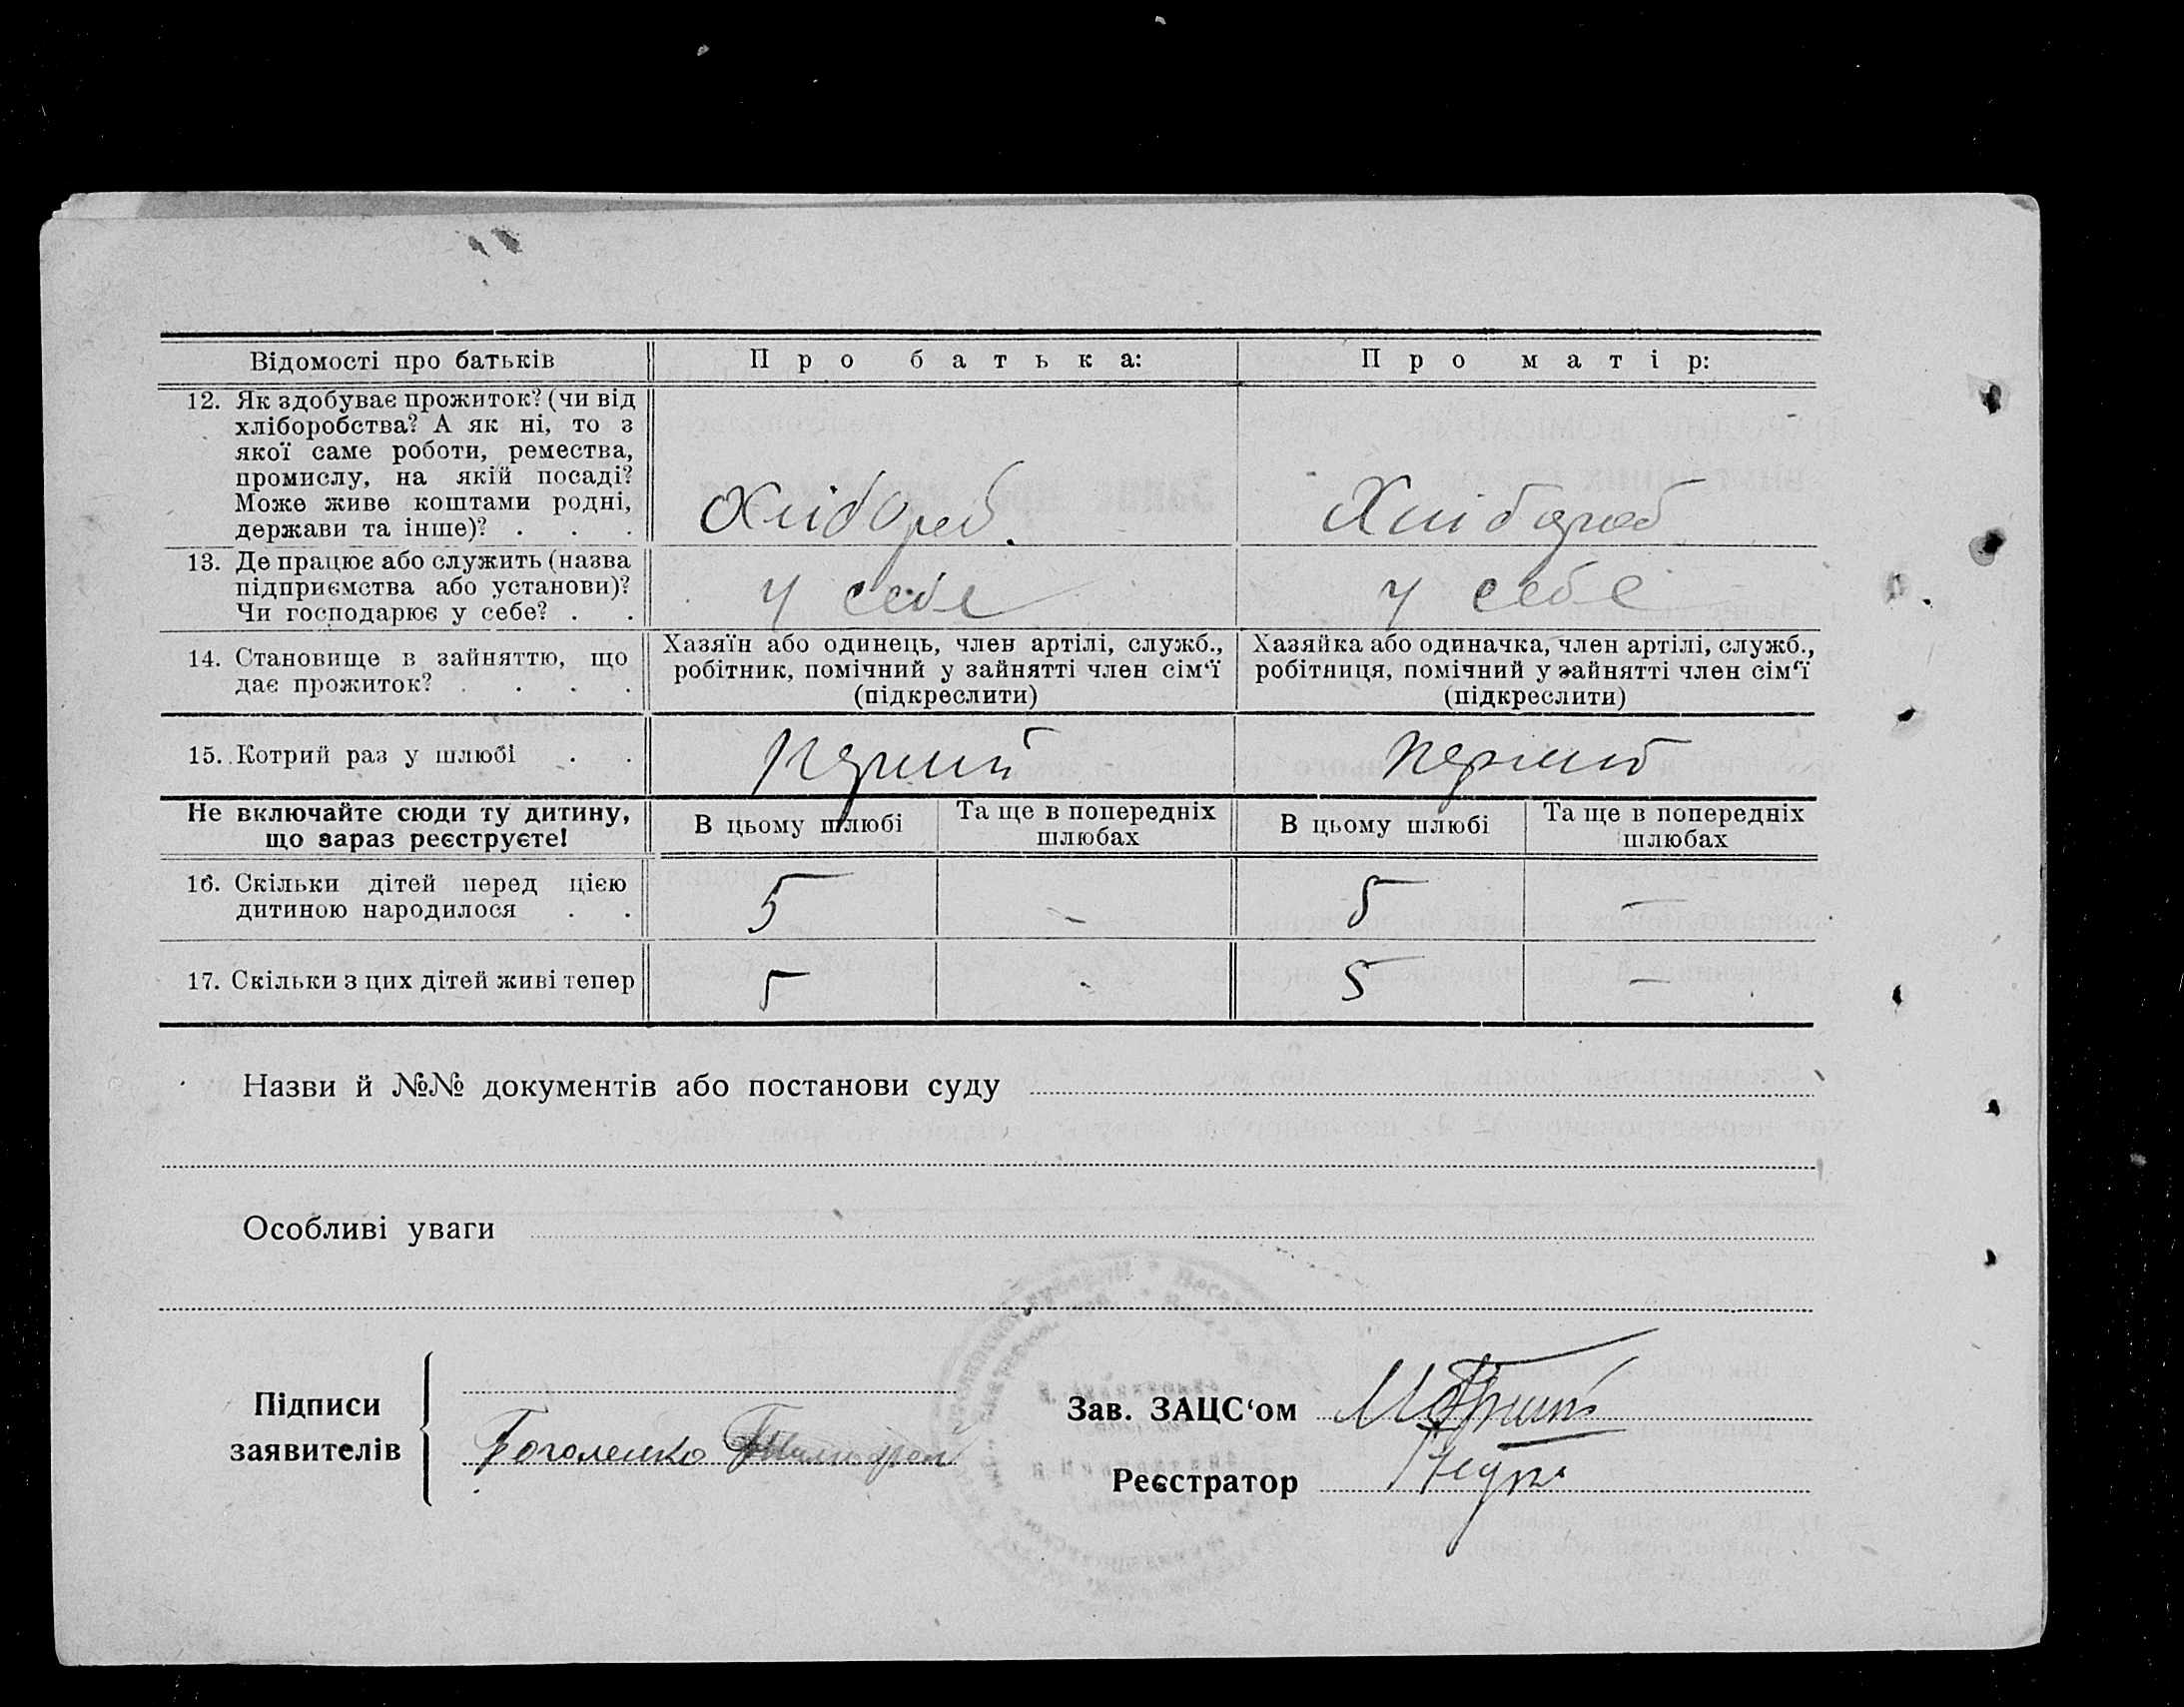 Відомості про батьків
Про батька:
Про матір:
12. Як здобуває прожиток? (чи від
хліборобства? А як ні, то з
якої саме роботи, ремества,
промислу, на якій посаді?
Може живе коштами родні,
держави та інше)? . . .
Хлібороб.
Хлібороб
13. Де працює або служить (назва
підприємства або установи)?
Чи господарює у себе? . .
У себе
У себе
14. Становище в зайняттю, що
дає прожиток? . . . .
Хазяїн або одинець, член артілі, служб.,
робітник, помічний у зайнятті член сім‘ї
(підкреслити)
Хазяйка або одиначка, член артілі, служб.,
робітниця, помічний у зайнятті член сім‘ї
(підкреслити)
15. Котрий раз у шлюбі . .
перший
перший
Не включайте сюди ту дитину,
що зараз реєструєте!
В цьому шлюбі
Та ще в попередніх
шлюбах
В цьому шлюбі
Та ще в попередніх
шлюбах
16. Скільки дітей перед цією
дитиною народилося . .
5
-
5
—
17. Скільки з цих дітей живі тепер
5
-
5
—
Назви й №№ документів або постанови суду
Особливі уваги
Підписи
заявителів
Зав. ЗАЦС‘ом
Реєстратор